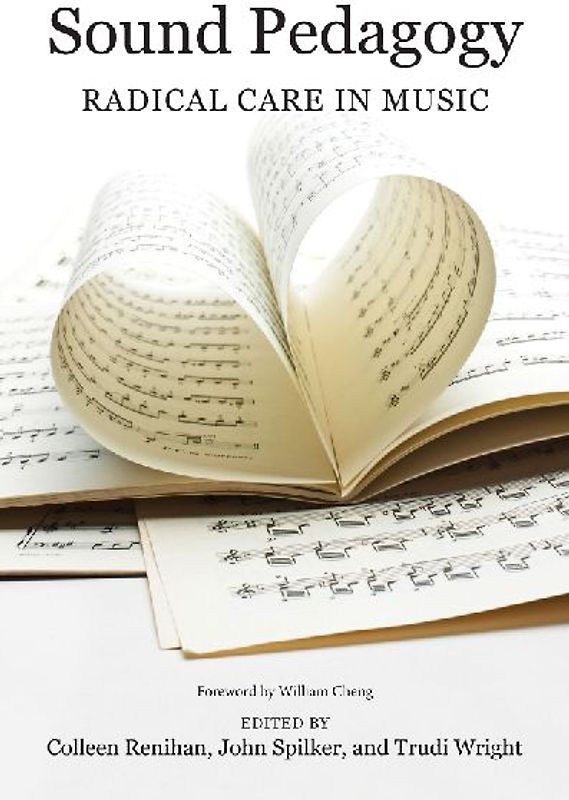 Sound Pedagogy
RADICAL CARE IN MUSIC
Foreword by William Cheng
EDITED BY
Colleen Renihan, John Spilker, and Trudi Wright